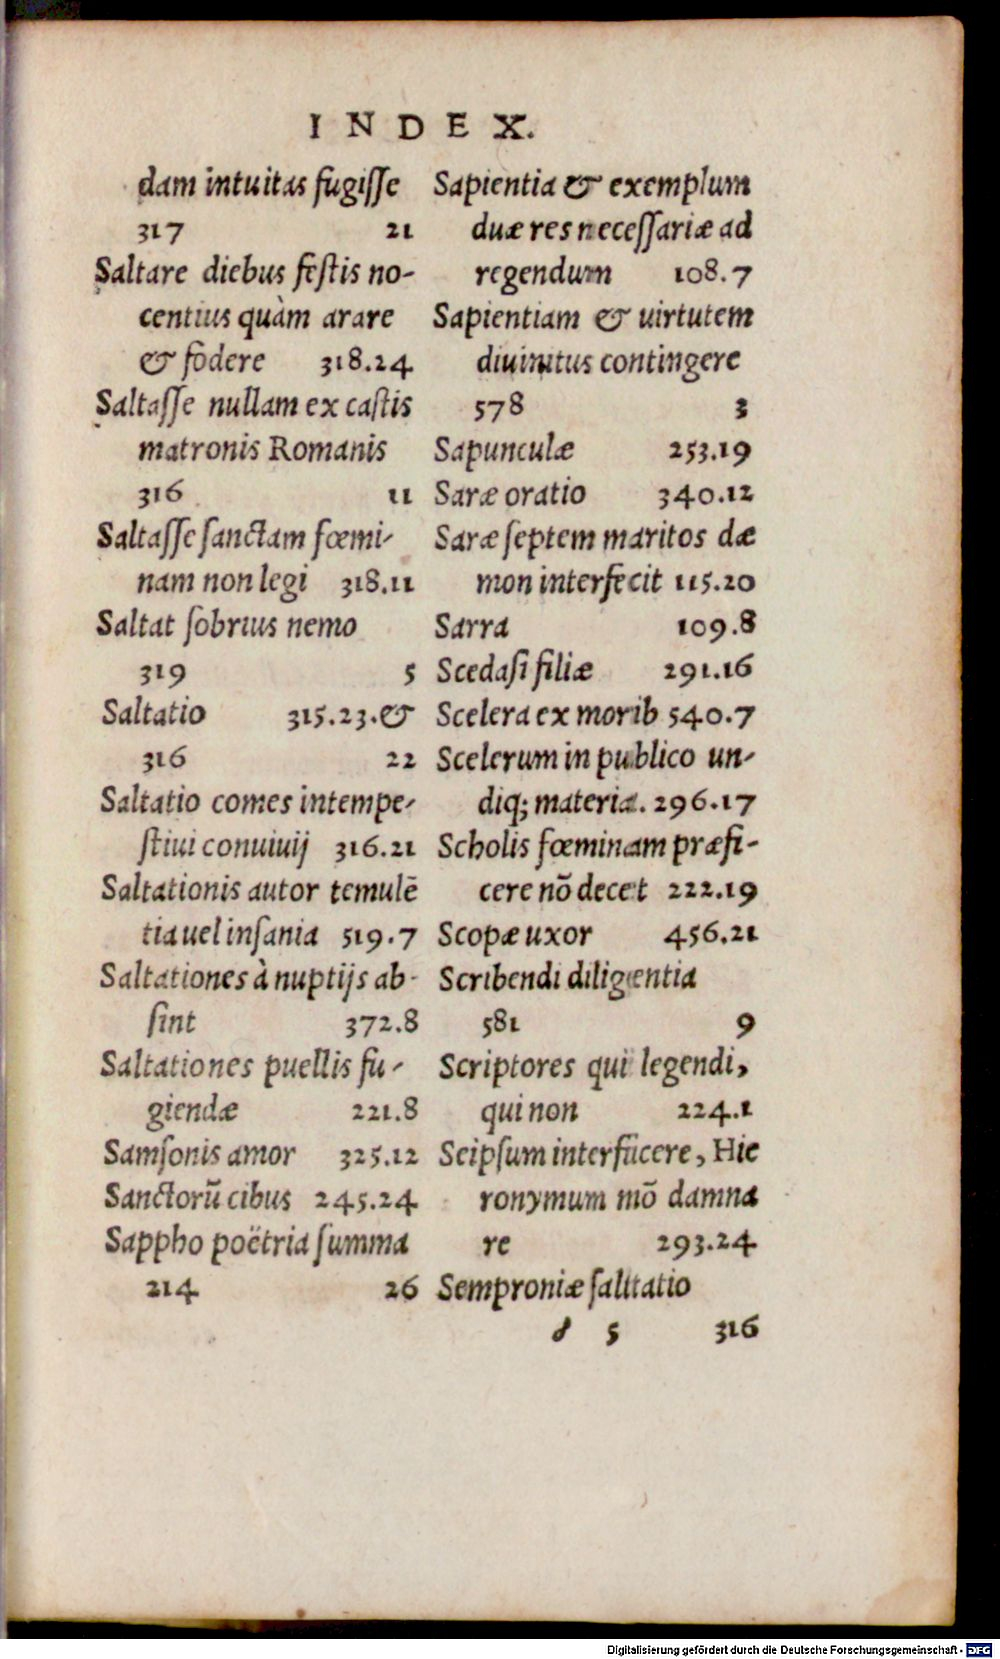 INDEX.
dam intuitas fugiſſe
317 21
Saltare diebus feſtis no-
centius quàm arare
& fodere 318.24
Saltaſſe nullam ex caſtis
matronis Romanis
316 11
Saltaſſe ſanctam fœmi-
nam non legi 318.11
Saltat ſobrius nemo
319 5
Saltatio 315.23.&
316 22
Saltatio comes intempe-
ſtiui conuiuij 316.21
Saltationis autor temulē
tia uel inſania 519.7
Saltationes à nuptijs ab-
ſint 372.8
Saltationes puellis fu-
giendæ 221.8
Samſonis amor 325.12
Sanctorū cibus 245.24
Sappho poëtria ſumma
214 26
Sapientia & exemplum
duæ res neceſſariæ ad
regendum 108.7
Sapientiam & uirtutem
diuinitus contingere
578 3
Sapunculæ 253.19
Saræ oratio 340.12
Saræ ſeptem maritos dæ
mon interfecit 115.20
Sarra 109.8
Scedaſi filiæ 291.16
Scelera ex morib 540.7
Scelerum in publico un-
diq; materia. 296.17
Scholis fœminam præfi-
cere nō decet 222.19
Scopæ uxor 456.21
Scribendi diligentia
581 9
Scriptores qui legendi,
qui non 224.1
Seipſum interficere, Hie
ronymum mō damna
re 293.24
Semproniæ ſaltatio
5 316
Digitalisierung gefördert durch die Deutsche Forschungsgemeinschaft - DFG